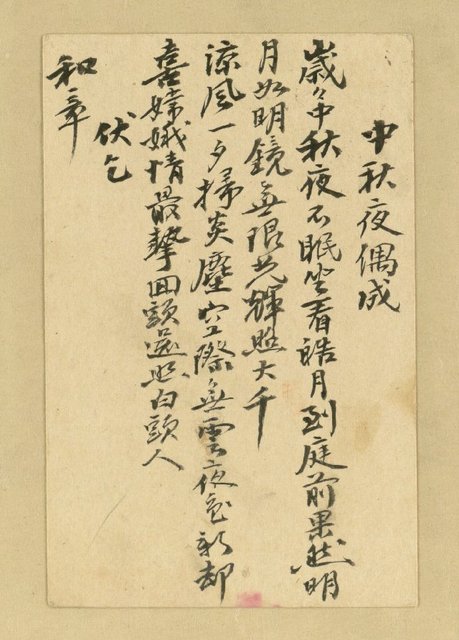 中秋夜偶成
歲々中秋夜不眠坐看皓月到庭前果然明
月如明鏡無限光輝照大千
涼風一夕掃炎塵空際無雲夜色新却
喜嫦娥情最摯回頭還照白頭人
伏乞
和章